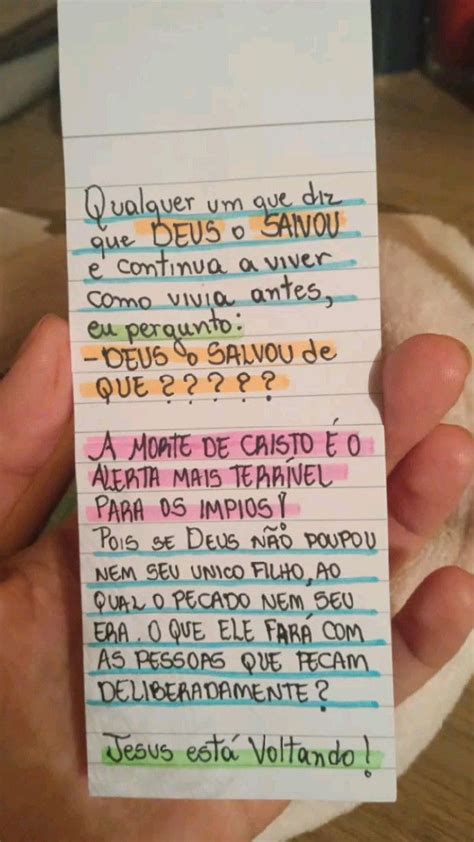 Qualquer um que diz
que DEUS o SALVOU
e continua a viver
como vivia antes,
eu pergunto:
-DEUS o SALVOU de
QUE ? ? ? ? ?
A MORTE DE CRISTO É O
ALERTA MAIS TERRÍVEL
PARA OS IMPIOS!
POIS SE DEUS NÃO POUPOU
NEM SEU UNICO FILHO, AO
QUAL O PECADO NEM SEU
ERA. O QUE ELE FARÁ COM
AS PESSOAS QUE PECAM
DELIBERADAMENTE?
Jesus está Voltando!